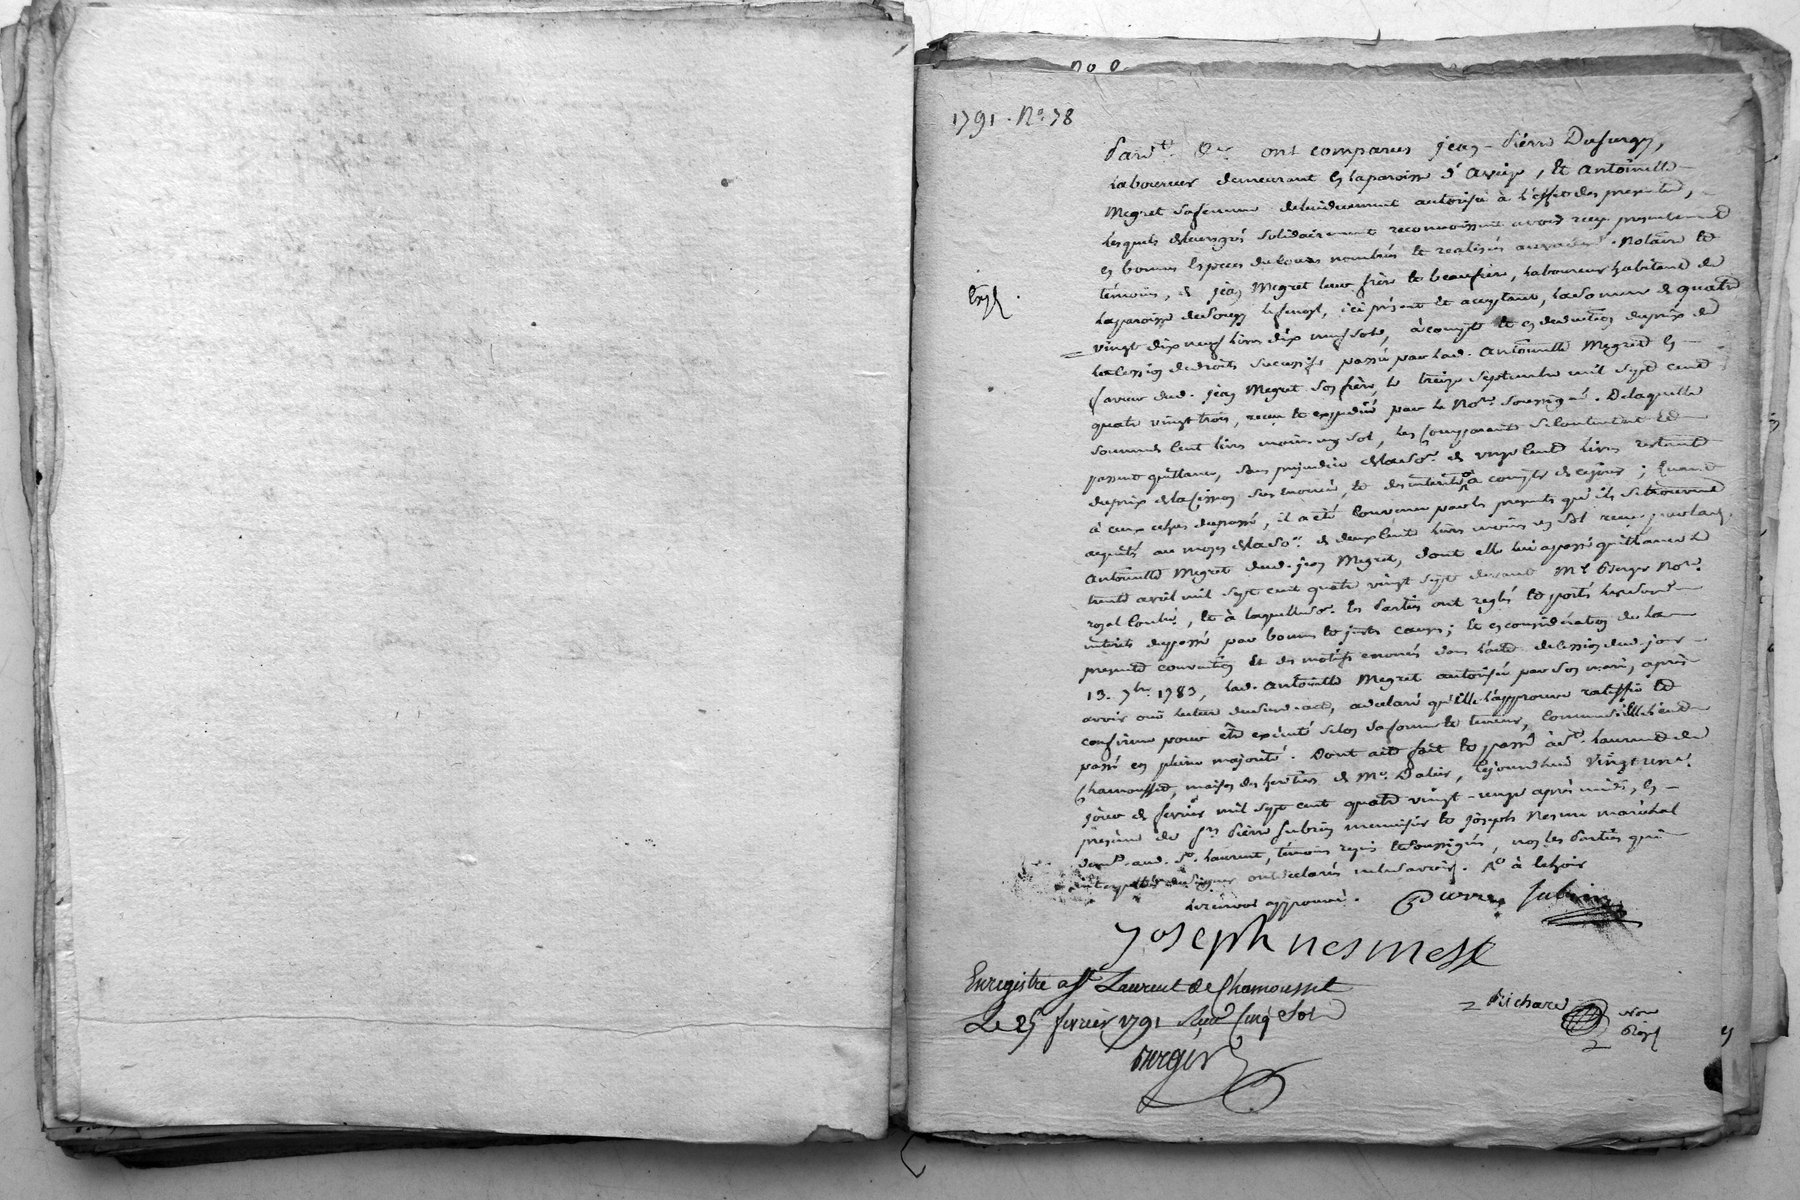 1791. N° 78
Pard.t &c. ont comparus jean-pierre Dusurgey,
laboureur demeurant en la paroisse d'Aveize, et Antoinette
Megret sa femme de lui duement autorisée à l'effet des presentes,
lesquels de leurs grés solidairement reconnoissent avoir reçu presentement
en bonnes especes du cours nombrées et realisées au vu du d. Notaire et
témoins, de jean Megret leur frère et beaufrère, laboureur habitant de
la paroisse de Soucy, ici présent et acceptant, la somme de quatre
Exp.
vingt dix neuf livres dix neuf sols, à compte et en deduction du prix de
la Cession de droits successifs passée par lad. Antoinette Megret en
faveur dud. jean Megret son frère, le treize Septembre mil sept cent
quatre vingt trois, reçue et expediée par le No.re soussigné. De laquelle
somme de cent livres moins un sol, les Comparants se contentent et
passent quittance, sans prejudice de la so.e de cent livres restante
du prix de la Cession sus énoncée, et des intérêts à compter de ce jour; Quant
à ceux échus du passé, il a été convenu par les presentes qu'ils se trouvent
acquités au moyen de la so.e de deux cents livres moins un sol reçue par lad.
Antoinette Megret dud. jean Megret, dont elle lui a passé quittance le
trente avril mil sept cent quatre vingt sept devant M.e No.re
royal, et à laquelle so.e les Parties ont reglés et portés lesdits
intérêts du passé par bonnes et justes causes; Et en considération de la
presente convention et des motifs énoncés dans l'acte de cession dud. jour
13. 7bre 1783, lad. Antoinette Megret autorisée par son mari, après
avoir oui lecture dud. acte, a declaré qu'elle l'approuve ratiffie et
confirme pour être exécuté selon sa forme et teneur, comme si elle l'eut
passé en pleine majorité. Dont acte fait et passé à S.t Laurent de
Chamousset, maison des heritiers de M.e Dalin, cejourd'hui vingt un.e
jour de février mil sept cent quatre vingt-onze après midi, en
présence de s.rs Pierre Subrin menuisier et joseph Nesme maréchal
dem.t aud. S.t Laurent, témoins requis et soussignés, non les Parties qui
interpellées de signer ont déclarés ne le savoir.
approuvé. Pierre Subrin
joseph nesmess
Enregistré a S.t Laurent de Chamousset
Le 25 fevrier 1791 Reçu Cinq Sols
Richard Not.
Roy.l